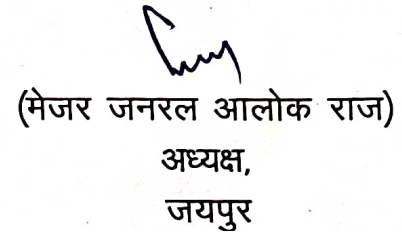 (मेजर जनरल आलोक राज)
अध्यक्ष,
जयपुर